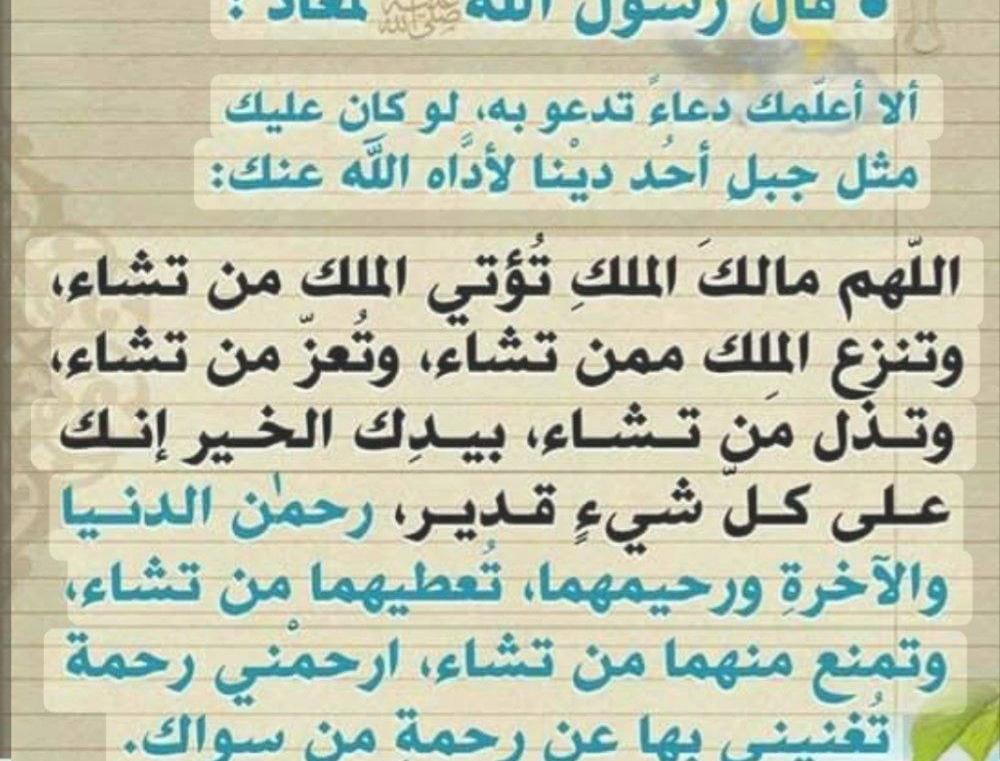 • قال رسول الله ﷺ لمعاذ :
ألا أعلّمك دعاءً تدعو به، لو كان عليك
مثل جبلِ أحُد ديْنا لأدَّاه اللَّه عنك:
اللّهم مالكَ الملكِ تُؤتي الملك من تشاء،
وتنزع الملك ممن تشاء، وتُعزّ من تشاء،
وتذل مَن تشاء، بيدِك الخير إنك
على كلّ شيءٍ قدير، رحمٰن الدنيا
والآخرةِ ورحيمهما، تُعطيهما من تشاء،
وتمنع منهما من تشاء، ارحمْني رحمة
تُغنيني بها عن رحمةِ من سواك.